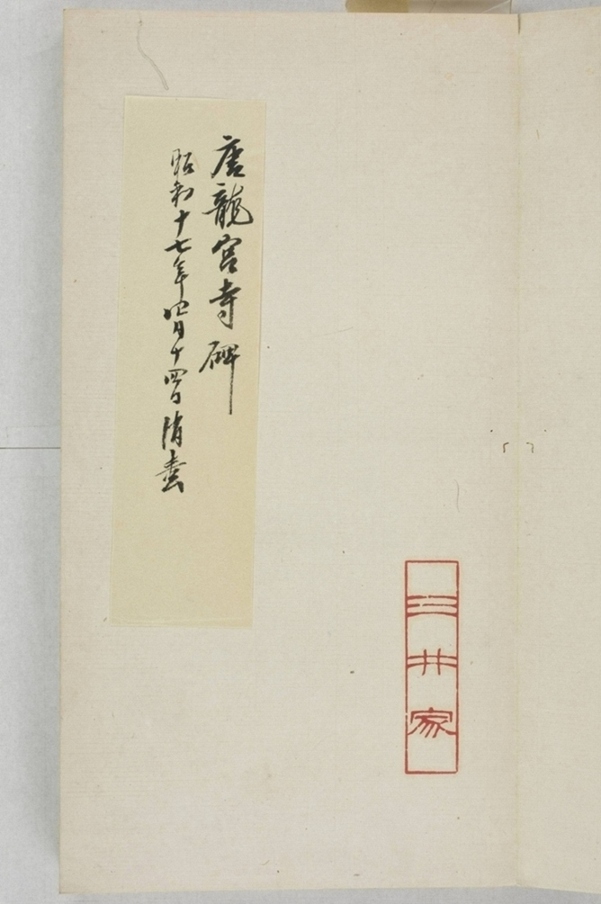 唐龍宮寺碑
昭和十七年四月十四日消毒
三井家